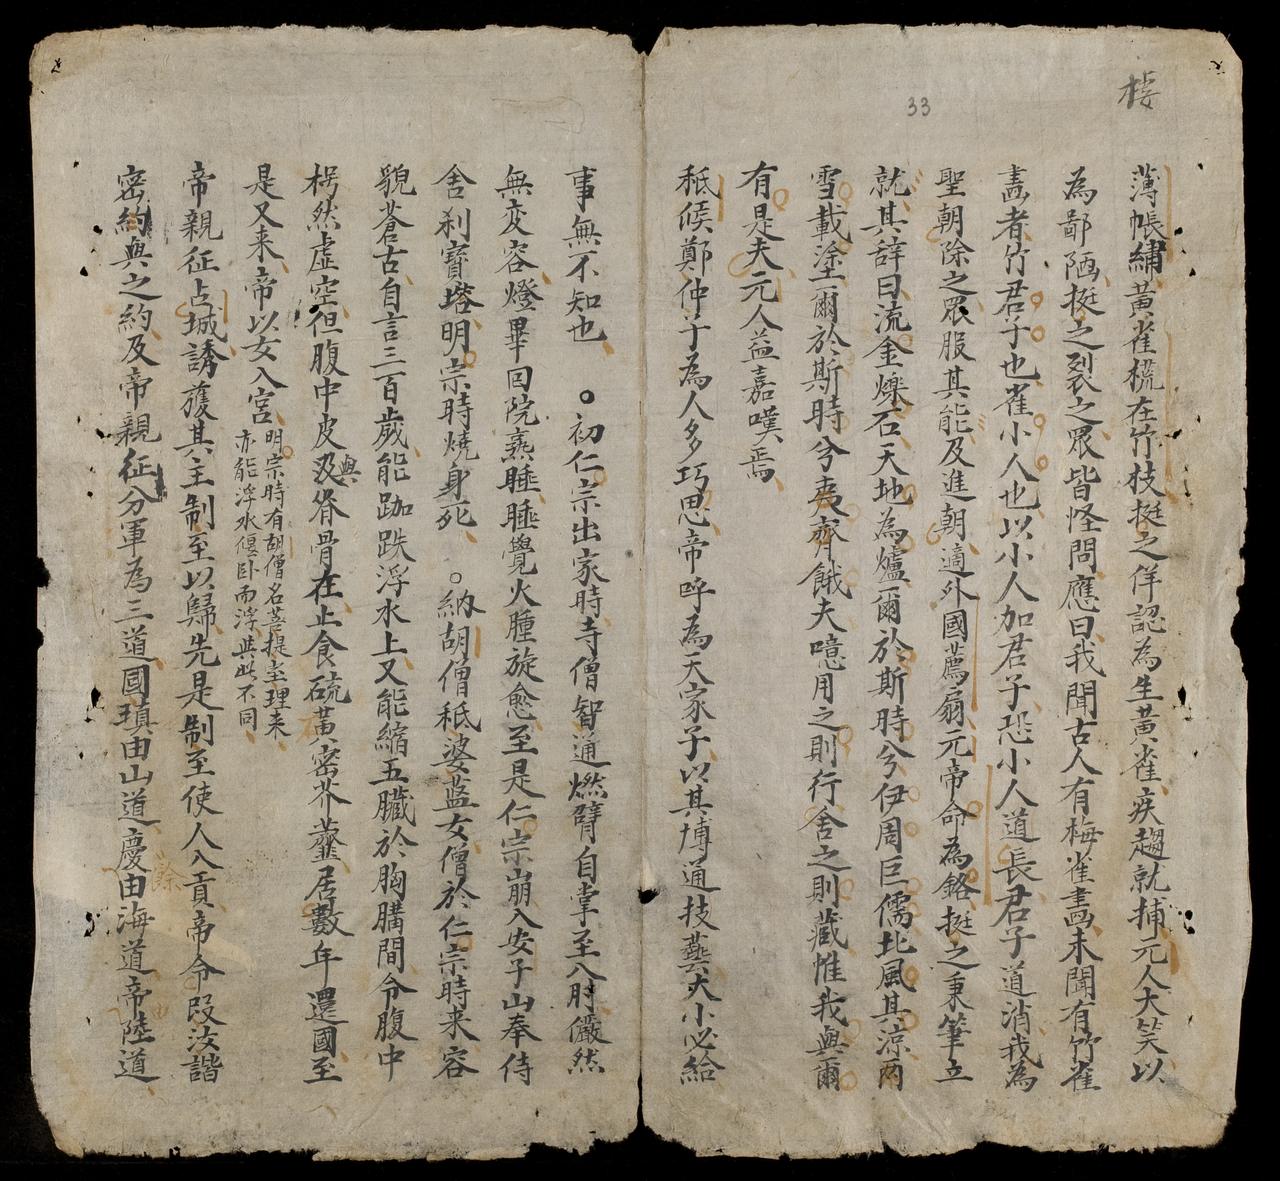 楼
33
薄帳繡黃雀桄在竹枝挺之佯認為生黃雀疾趨就捕元人大笑以
為鄙陋挺之裂之眾皆怪問應曰我聞古人有梅雀畵未聞有竹雀
畵者竹君子也雀小人也以小人加君子恐小人道長君子道消我為
聖朝除之眾服其能及進朝適外國薦扇元帝命為銘挺之秉筆立
就其辞曰流金爍石天地為爐爾於斯時兮伊周巨儒北風其涼雨
雪載塗爾於斯時兮夷齊餓夫噫用之則行舍之則藏惟我與爾
有是夫元人益嘉嘆焉
秪候鄭仲子為人多巧思帝呼為天家子以其博通技藝大小必給
事無不知也 〇初仁宗出家時寺僧智通燃臂自掌至八肘儼然
無変容燈畢囙院𤍠睡睡覺火腫旋愈至是仁宗崩入安子山奉侍
舍利寶塔明宗時燒身死 〇納胡僧秪婆藍女僧於仁宗時来容
貌蒼古自言三百歲能跏趺浮水上又能縮五臟於胸膈間令腹中
枵然虛空但腹中皮及與脊骨在止食硫黃密芥虀居數年還國至
是又来帝以女入宮明宗時有胡僧名菩提室理来
亦能浮水偃卧而浮與此不同
帝親征占城誘獲其主制至以歸先是制至使人入貢帝令段汝諧
密約與之約及帝親征分軍為三道國瑱由山道慶餘由海道帝陸道